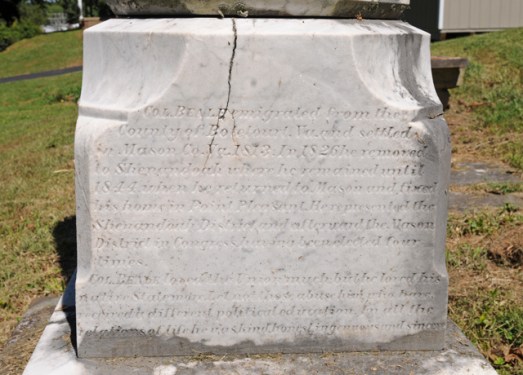 COL. BEALE emigrated from the
County of Botetourt, Va. and settled
in Mason Co. Va. 1813. In 1826 he removed
to Shenandoah where he remained until
1844 when he returned to Mason and fixed
his home in Point Pleasant. He represented the
Shenandoah District and afterward the Mason
District in Congress, having been elected four
times.
COL. BEALE loved the Union much but he loved his
native State more. Let not those abuse him who have
received a different political education. In all the
relations of life he was kind honest generous and sincere